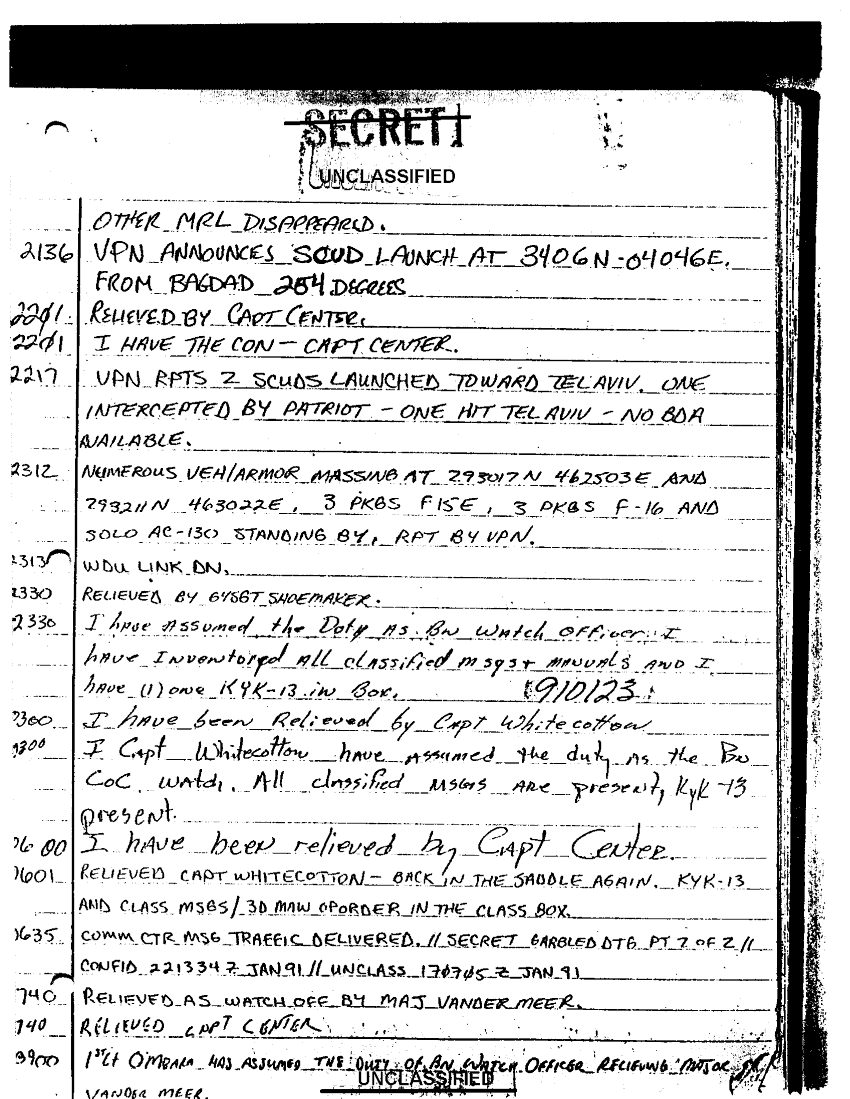 SECRET
UNCLASSIFIED
OTHER MRL DISAPPEARED.
2136 VPN ANNOUNCES SCUD LAUNCH AT 3406N-04046E.
FROM BAGDAD 284 DEGREES
2201 RELIEVED BY CAPT CENTER.
2201 I HAVE THE CON - CAPT CENTER.
2217 VPN RPTS 2 SCUDS LAUNCHED TOWARD TEL AVIV. ONE
INTERCEPTED BY PATRIOT - ONE HIT TEL AVIV - NO BDA
AVAILABLE.
2312 NUMEROUS VEH/ARMOR MASSING AT 293017N 462503E AND
293211N 463022E, 3 PKGS F15E, 3 PKGS F-16 AND
SOLO AC-130 STANDING BY, RPT BY VPN.
2313 WDU LINK DN.
2330 RELIEVED BY GYSGT SHOEMAKER.
2330 I have Assumed the Duty As Bn Watch Officer. I
have Inventored All classified msgs + manuals AND I
have (1) one KYK-13 in Box. 910123
0300 I have been Relieved by Capt Whitecotton
0300 I Capt Whitecotton have assumed the duty as the Bn
CoC Watch. All classified msgs are present, KyK-13
present.
0600 I have been relieved by Capt Center.
0601 RELIEVED CAPT WHITECOTTON - BACK IN THE SADDLE AGAIN. KYK-13
AND CLASS MSGS/3D MAW OPORDER IN THE CLASS BOX.
0635 COMM CTR MSG TRAFFIC DELIVERED. // SECRET GARBLED DTG PT 2 OF 2 //
CONFID 221334Z JAN91 // UNCLASS 170705Z JAN 91
740 RELIEVED AS WATCH OFF BY MAJ VANDER MEER.
740 RELIEVED CAPT CENTER
0900 1stLt O'MEARA HAS ASSUMED THE DUTY OF BN WATCH OFFICER RELIEVING MAJOR
UNCLASSIFIED
VANDER MEER.